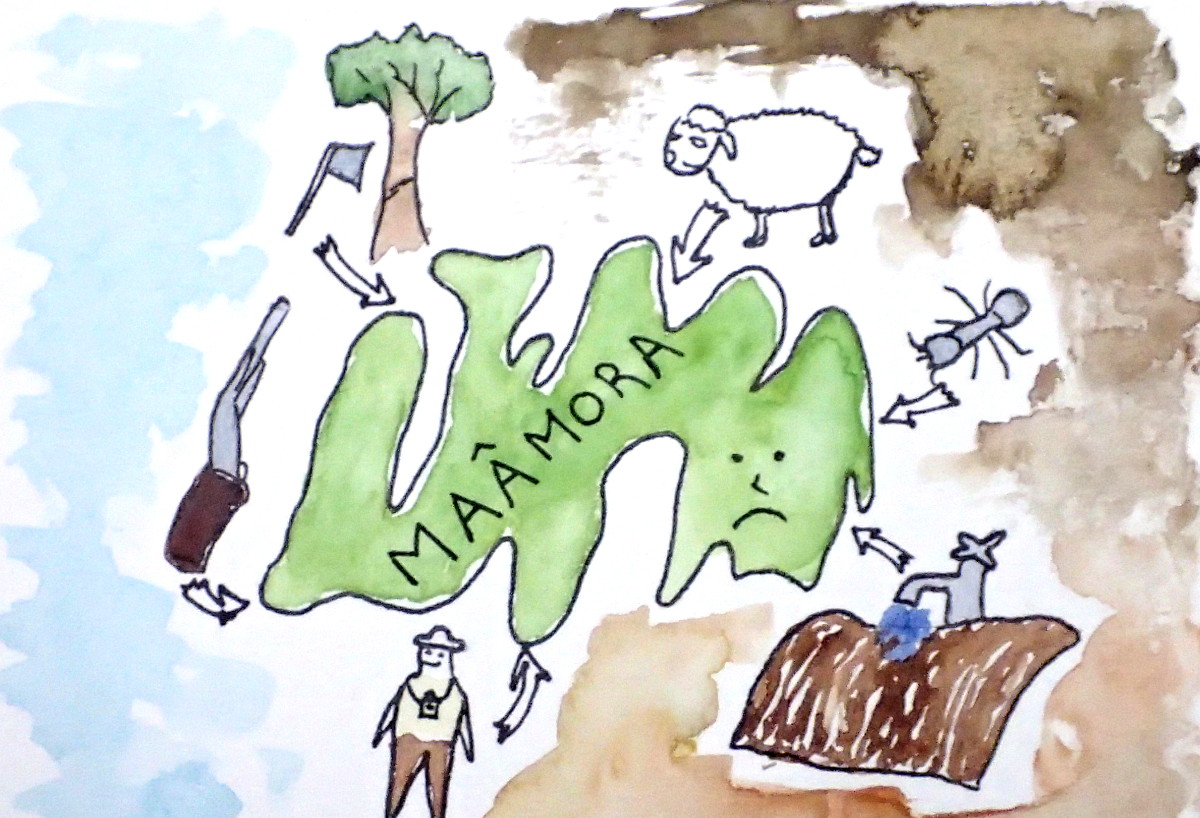 MAÂMORA